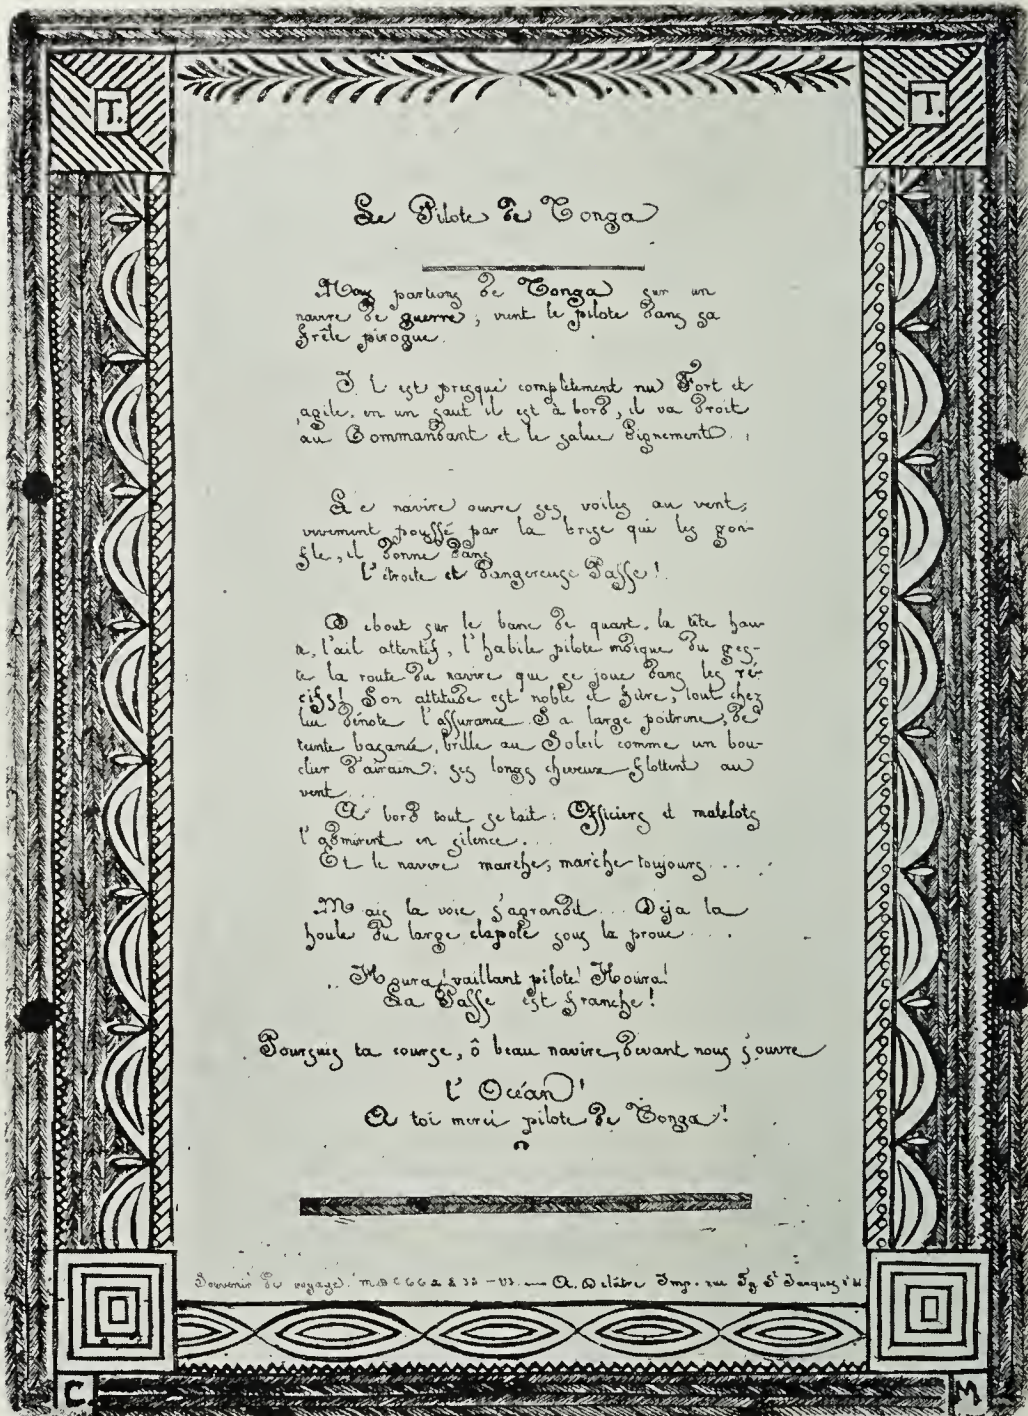 T. T.
Le Pilote de Tonga
Nous partions de Tonga sur un
navire de guerre, vient le pilote dans sa
frêle pirogue.
Il est presque complètement nu Fort et
agile, en un saut il est à bord, il va droit
au Commandant et le salue dignement.
Le navire ouvre ses voiles au vent,
vivement poussé par la brise qui les gon-
fle, il donne dans
l'étroite et dangereuse Passe!
Debout sur le banc de quart, la tête hau-
te, l'œil attentif, l'habile pilote indique du ges-
te la route du navire qui se joue dans les ré-
cifs! Son attitude est noble et fière, tout chez
lui dénote l'assurance. Sa large poitrine, de
teinte basanée, brille au Soleil comme un bou-
clier d'airain: ses longs cheveux flottent au
vent...
A bord tout se tait: Officiers et matelots
l'admirent en silence...
Et le navire marche, marche toujours...
Mais la voie s'agrandit... Déja la
houle du large clapote sous la proue....
.. Houra! vaillant pilote! Houra!
La Passe est franche!
Poursuis ta course, ô beau navire, devant nous s'ouvre
l'Océan!
A toi merci pilote de Tonga!
Souvenir de voyage. A. Delâtre Imp. rue Fg St Jacques
C. M